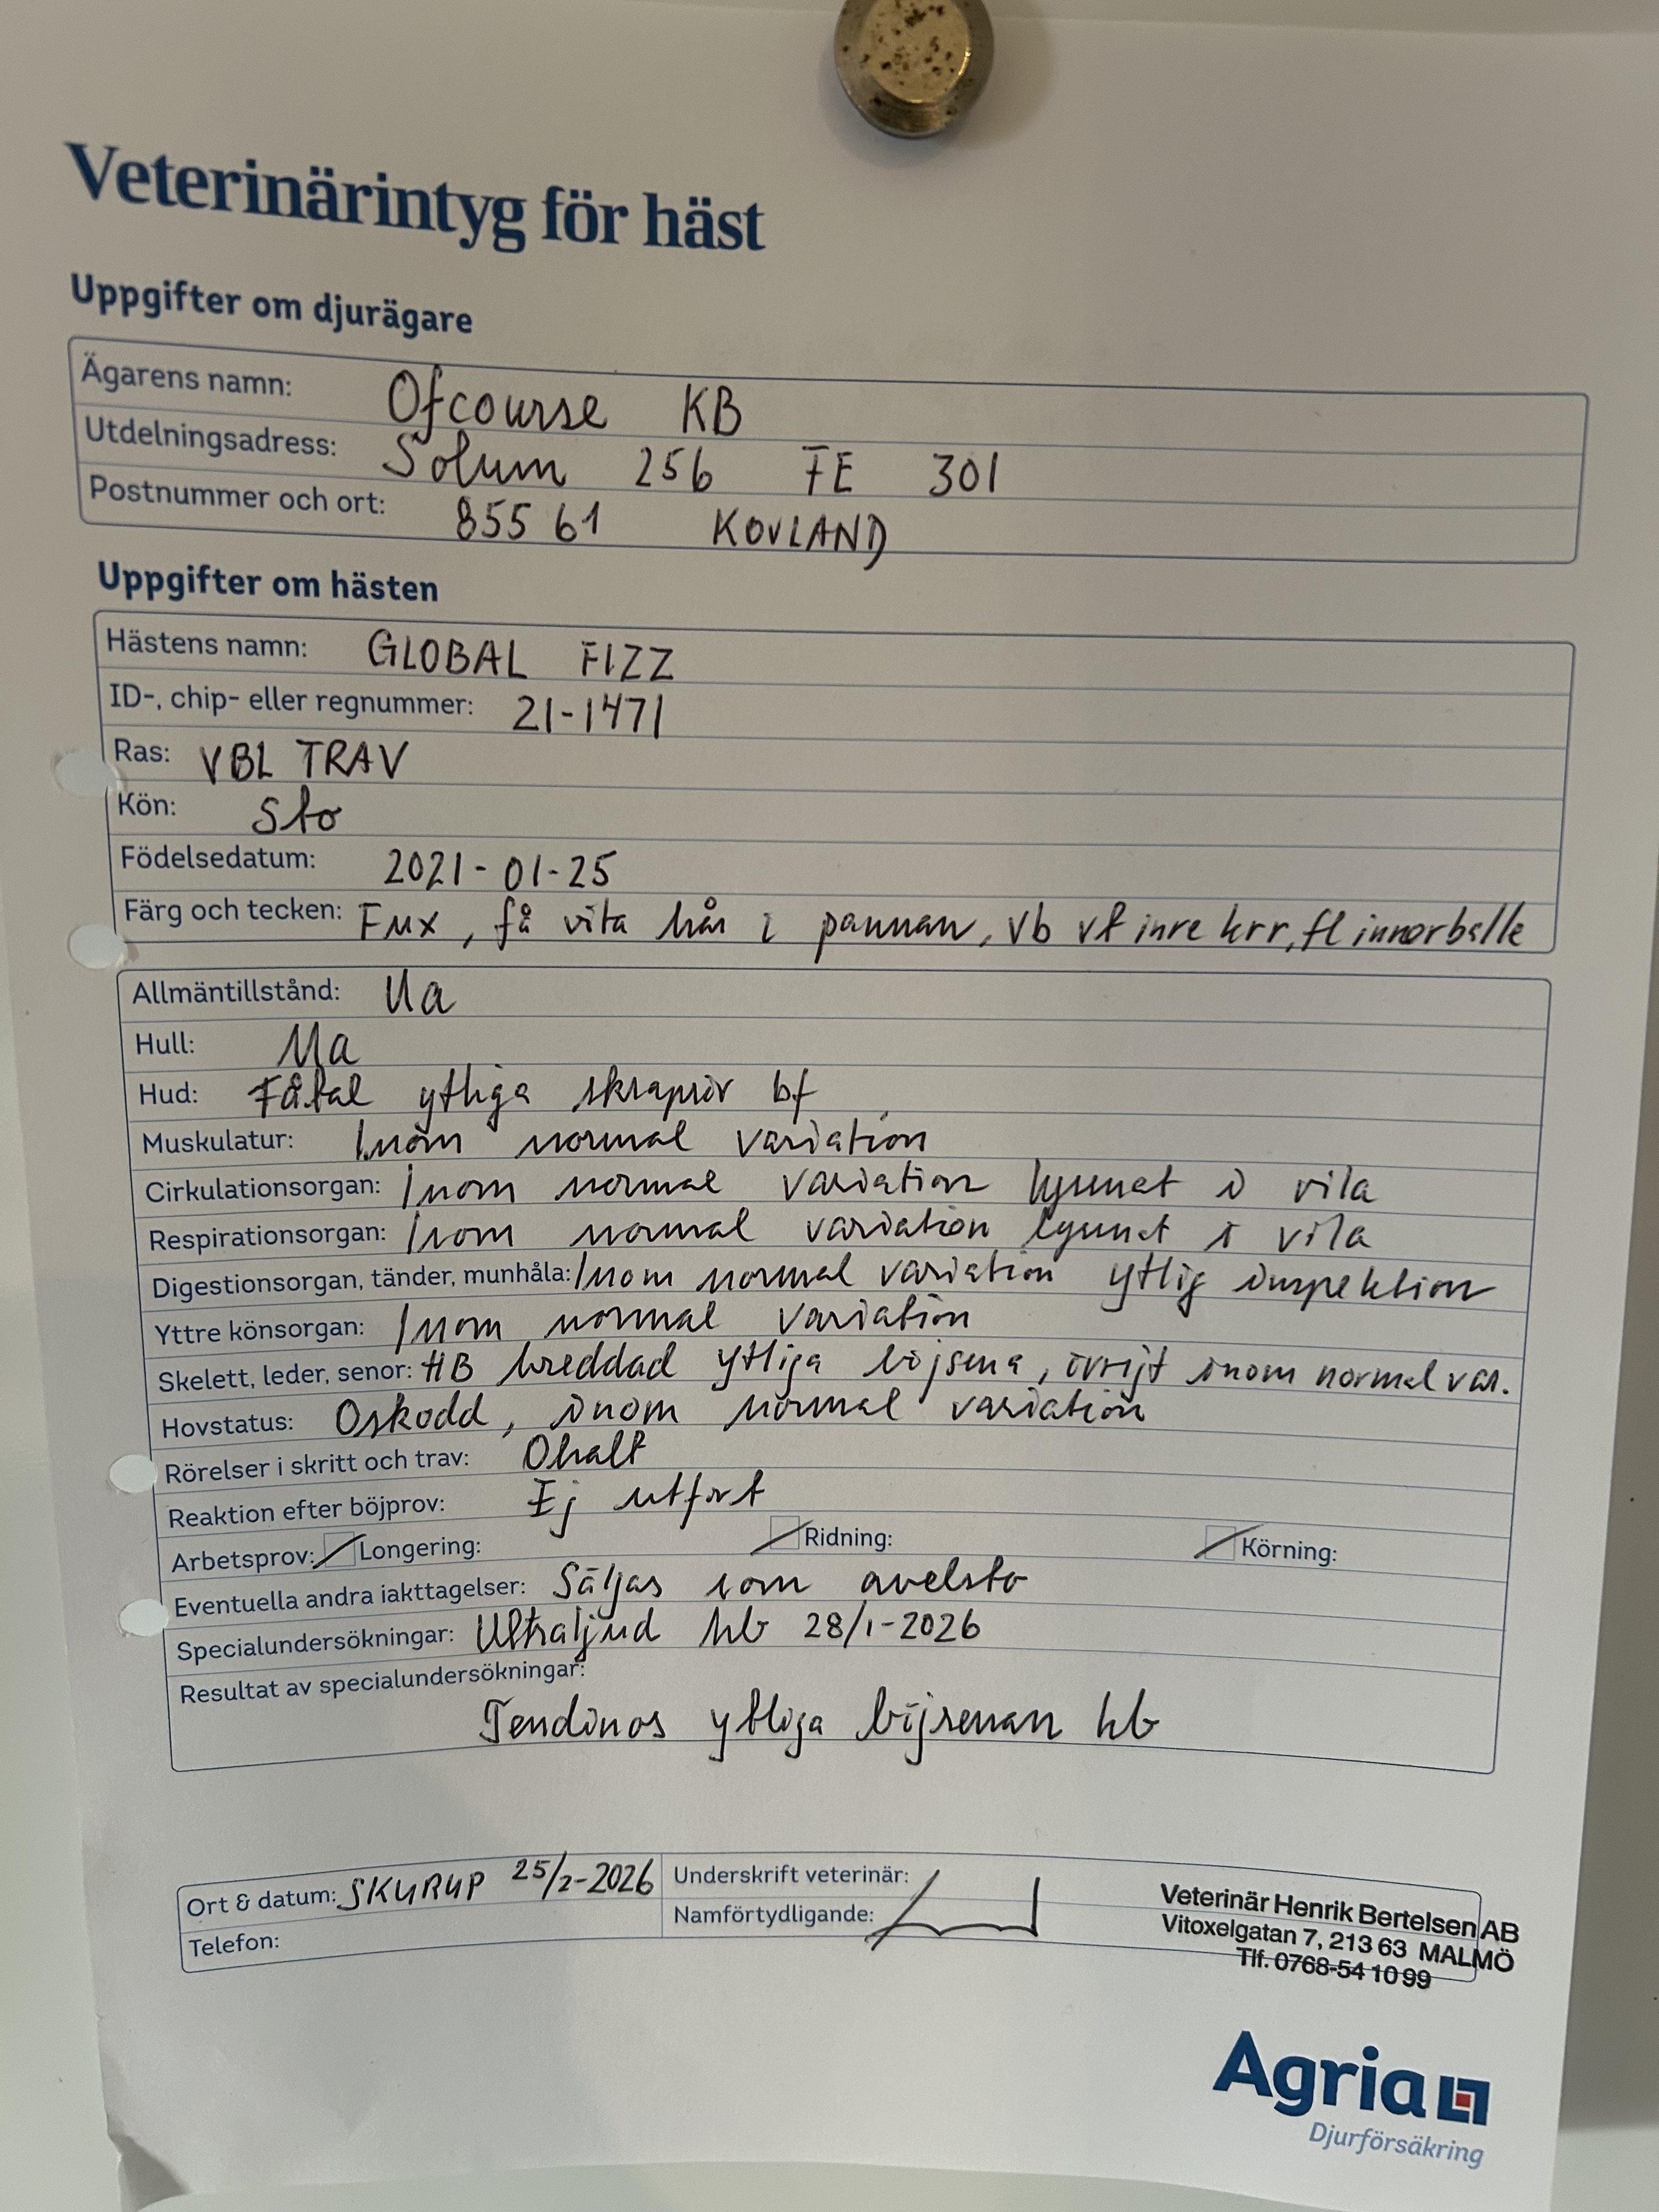 Veterinärintyg för häst
Uppgifter om djurägare
Ägarens namn: Ofcourse KB
Utdelningsadress: Solum 256 FE 301
Postnummer och ort: 855 61 KOVLAND
Uppgifter om hästen
Hästens namn: GLOBAL FIZZ
ID-, chip- eller regnummer: 21-1471
Ras: VBL TRAV
Kön: Sto
Födelsedatum: 2021-01-25
Färg och tecken: Fux, få vita hår i pannan, vb vt inre krr, fl innerballe
Allmäntillstånd: Ua
Hull: Ua
Hud: Fåtal ytliga skrapsår bf
Muskulatur: Inom normal variation
Cirkulationsorgan: Inom normal variation lyssnat i vila
Respirationsorgan: Inom normal variation lyssnat i vila
Digestionsorgan, tänder, munhåla: Inom normal variation ytlig inspektion
Yttre könsorgan: Inom normal variation
Skelett, leder, senor: HB breddad ytliga böjsena, övrigt inom normal var.
Hovstatus: Oskodd, inom normal variation
Rörelser i skritt och trav: Ohalt
Reaktion efter böjprov: Ej utfört
Arbetsprov: Longering: Ridning: Körning:
Eventuella andra iakttagelser: Säljas som avelsto
Specialundersökningar: Ultraljud hb 28/1-2026
Resultat av specialundersökningar:
Tendinos ytliga böjsenan hb
Ort & datum: SKURUP 25/2-2026
Telefon:
Underskrift veterinär:
Namförtydligande:
Veterinär Henrik Bertelsen AB
Vitoxelgatan 7, 213 63 MALMÖ
Tlf. 0768-54 10 99
Agria
Djurförsäkring